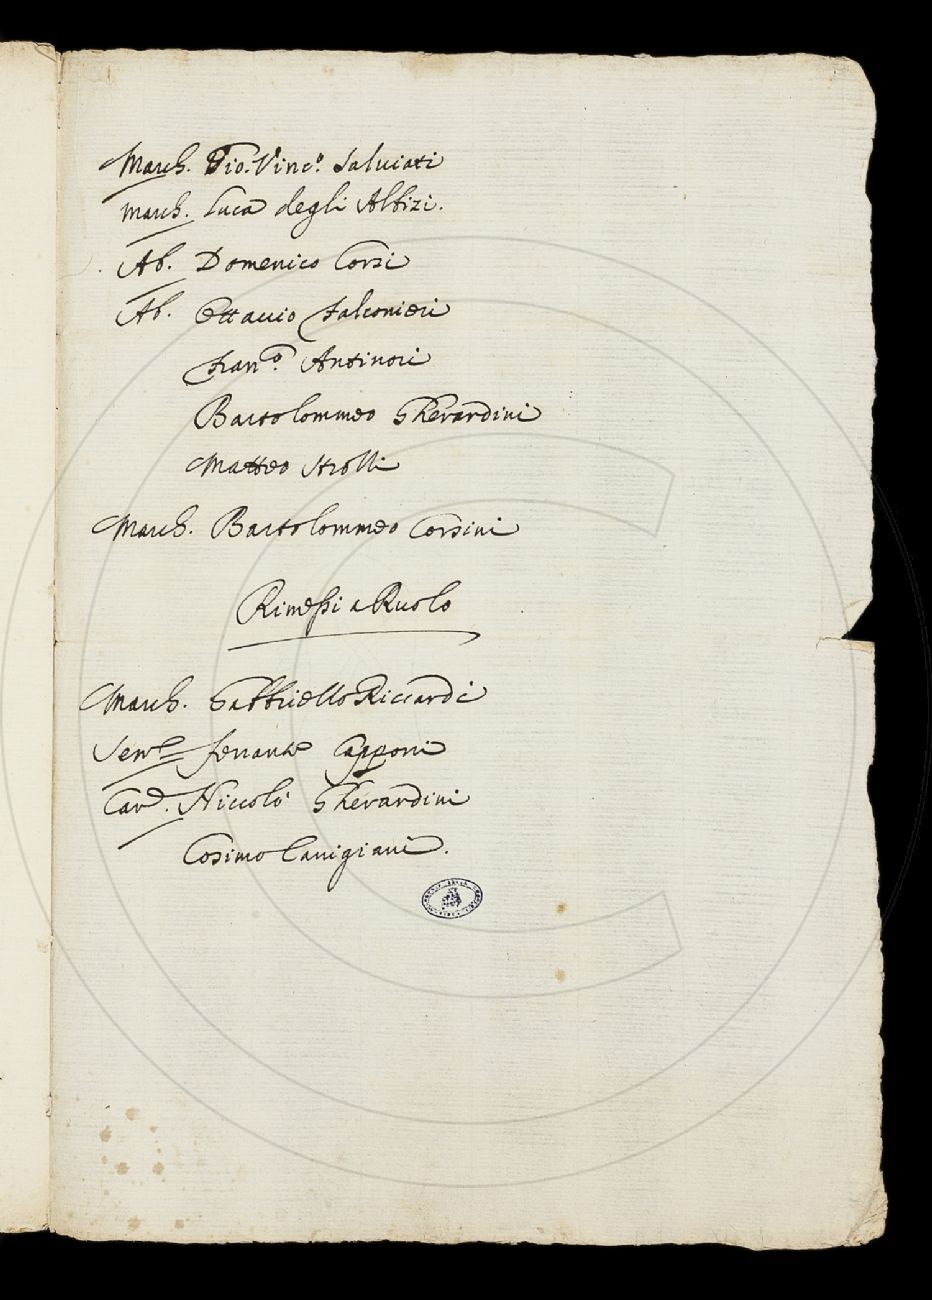 March. Gio. Vinc.º Salviati
March. Luca degli Albizi.
Ab. Domenico Corsi
Ab. Ottavio Falconieri
Fran.º Antinori
Bartolommeo Gherardini
Matteo Strozzi
March. Bartolommeo Corsini
Rimessi a Ruolo
March. Gabbriello Riccardi
Sen.re Ferrante Capponi
Cav.re Niccolò Gherardini
Cosimo Canigiani.